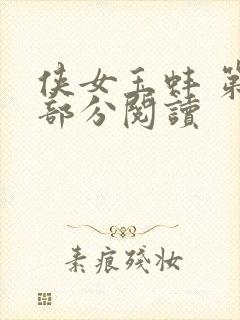 侠女玉蚌 第
部分阅读
素痕残妆